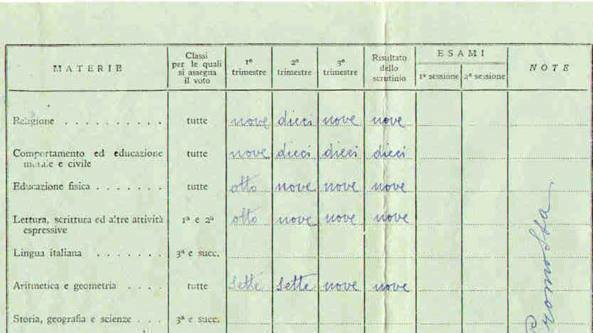 MATERIE Classi per le quali si assegna il voto 1º trimestre 2º trimestre 3º trimestre Risultato dello scrutinio ESAMI 1ª sessione 2ª sessione NOTE
Religione . . . . . . . . . . tutte nove dieci nove nove
Comportamento ed educazione morale e civile . . . . . . . tutte nove dieci dieci dieci
Educazione fisica . . . . . . . tutte otto nove nove nove
Lettura, scrittura ed altre attività espressive 1ª e 2ª otto nove nove nove
Lingua italiana . . . . . . . 3ª e succ.
Aritmetica e geometria . . . . tutte sette sette nove nove
Storia, geografia e scienze . . . 3ª e succ.
Promossa